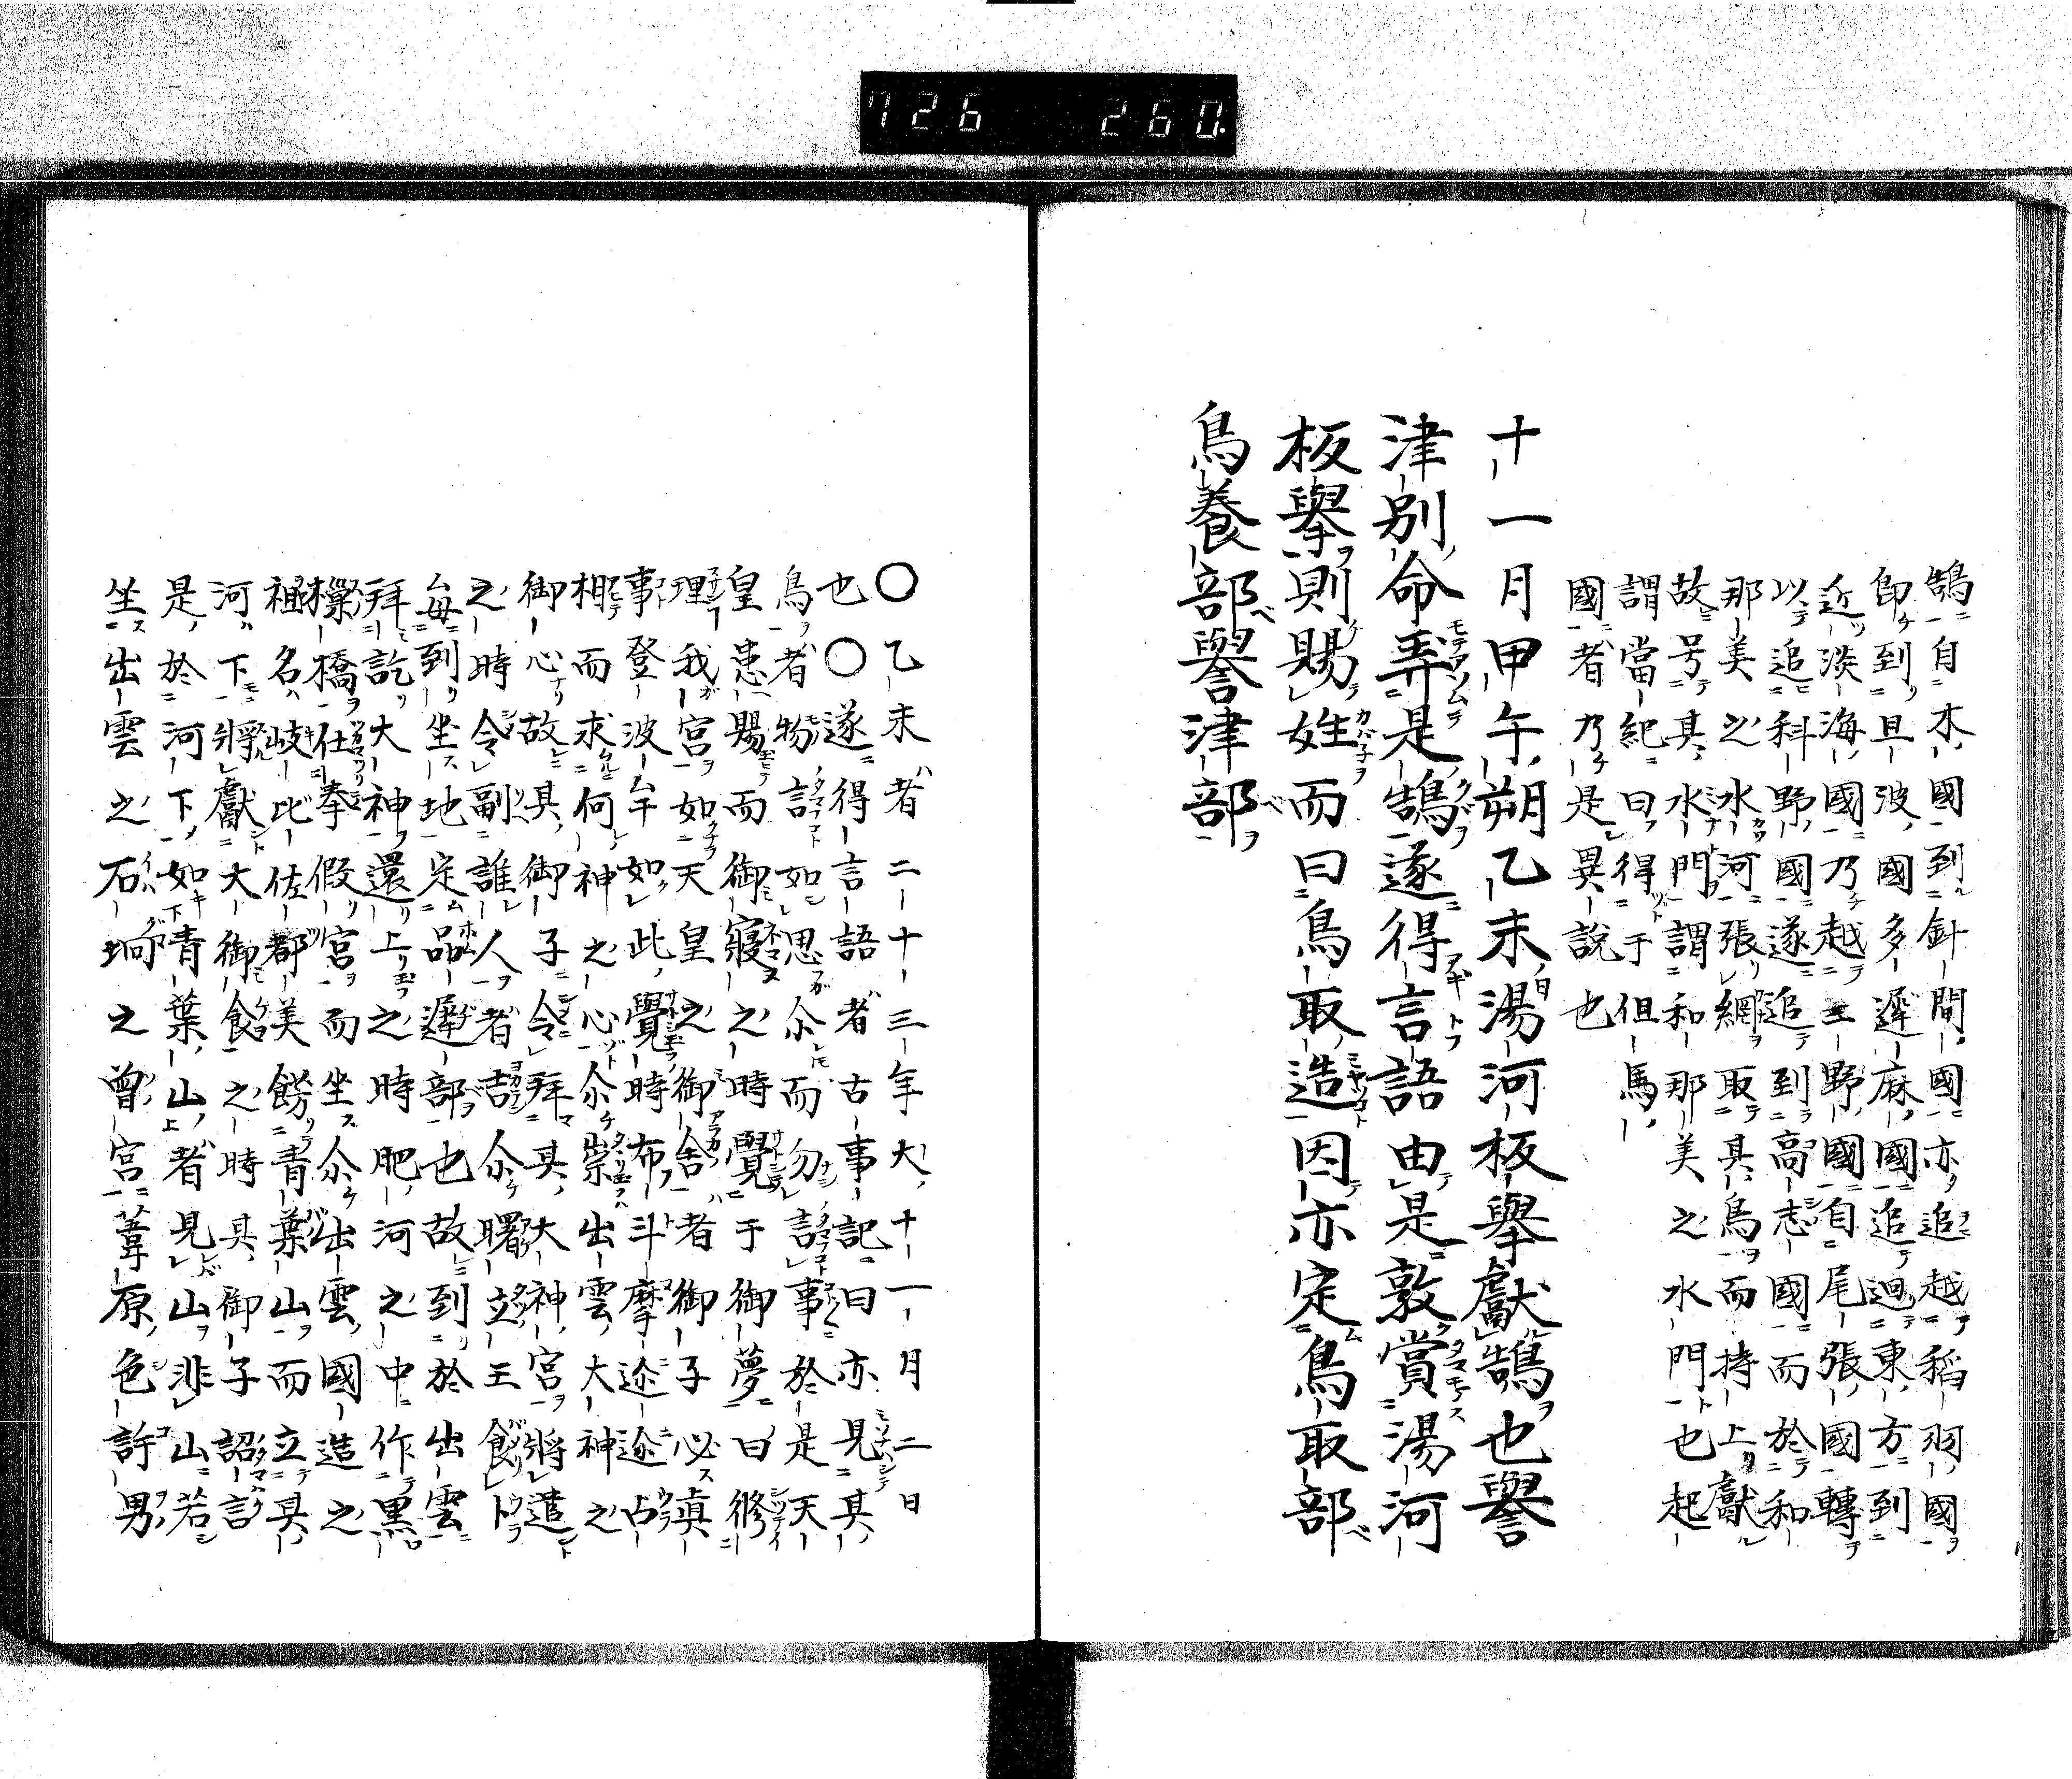 726 260.
鵠自木國到針間國亦追越稻羽國
即到旦波國多遲麻國追迴東方到
近淡海國乃越三野國自尾張國轉
以追科野國遂追到高志國而於和
那美之水河張網取其鳥而持上獻
故号其水門謂和那美之水門也起
謂當紀曰得于但馬
國者乃是異說也
十一月甲午朔乙未湯河板舉獻鵠也譽
津別命弄是鵠遂得言語由是敦賞湯河
板舉則賜姓而曰鳥取造因亦定鳥取部
鳥養部譽津部
〇乙未者二十三年大十一月二日
也〇遂得言語者古事記曰亦見其
鳥者物言如思尒而勿言事於是天
皇患賜而御寢之時覺于御夢曰修
理我宮如天皇之御舍者御子必眞
事登波ム牟如此覺時布斗摩迩迩占
相而求何神之心尒祟出雲大神之
御心故其御子令拜其大神宮將遣
之時令副誰人者吉尒曙立王食卜
ム每到坐地定品遲部也故到於出雲
拜訖大神還上之時肥河之中作黒
樔橋仕奉假宮而坐尒出雲國造之
祖名岐比佐都美餝青葉山而立其
河下將獻大御食之時其御子詔言
是於河下如青葉山者見山非山若
坐出雲之石坰之曾宮葦原色許男